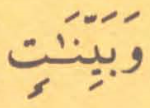 وَبَيِّنَٰتٍ